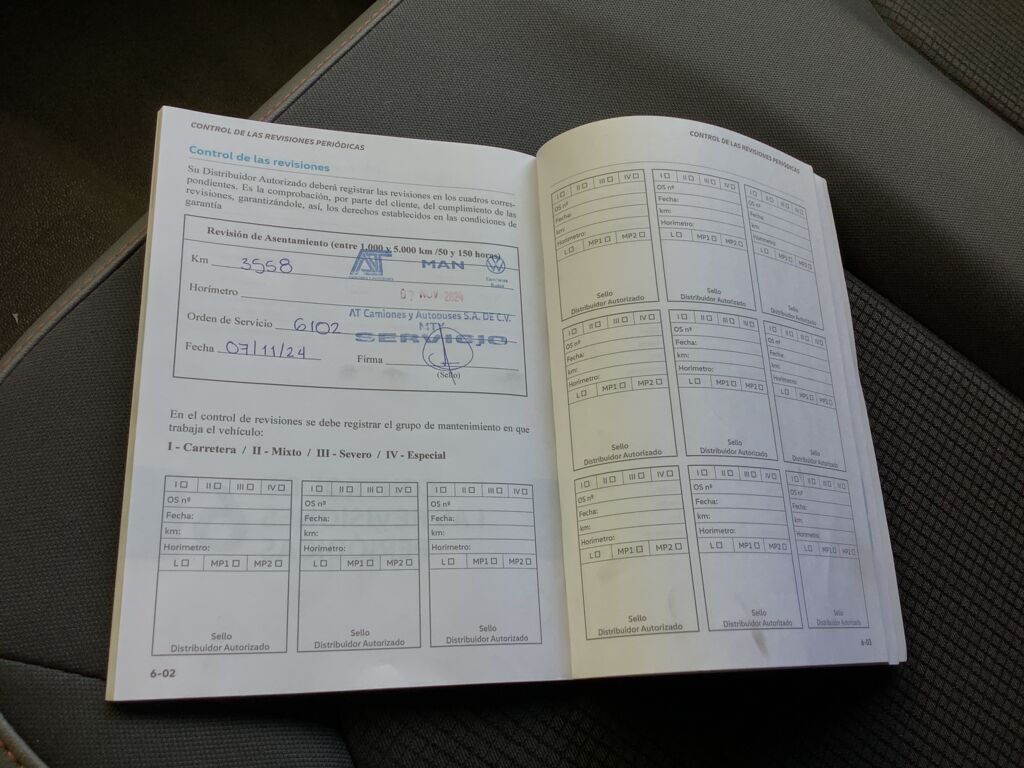 CONTROL DE LAS REVISIONES PERIÓDICAS
Control de las revisiones
Su Distribuidor Autorizado deberá registrar las revisiones en los cuadros corres-
pondientes. Es la comprobación, por parte del cliente, del cumplimiento de las
revisiones, garantizándole, así, los derechos establecidos en las condiciones de
garantía
Revisión de Asentamiento (entre 1.000 y 5.000 km /50 y 150 horas)
Km 3558
AT MAN
Horímetro
07 NOV 2024
AT Camiones y Autobuses S.A. DE C.V.
MTY
Orden de Servicio 6102
SERVICIO
Fecha 07/11/24 Firma
(Sello)
En el control de revisiones se debe registrar el grupo de mantenimiento en que
trabaja el vehículo:
I - Carretera / II - Mixto / III - Severo / IV - Especial
I II III IV I II III IV I II III IV
OS nº OS nº OS nº
Fecha: Fecha: Fecha:
km: km: km:
Horímetro: Horímetro: Horímetro:
L MP1 MP2 L MP1 MP2 L MP1 MP2
Sello Sello Sello
Distribuidor Autorizado Distribuidor Autorizado Distribuidor Autorizado
6-02
CONTROL DE LAS REVISIONES PERIÓDICAS
I II III IV I II III IV I II III IV
OS nº OS nº OS nº
Fecha: Fecha: Fecha:
km: km: km:
Horímetro: Horímetro: Horímetro:
L MP1 MP2 L MP1 MP2 L MP1 MP2
Sello Sello Sello
Distribuidor Autorizado Distribuidor Autorizado Distribuidor Autorizado
I II III IV I II III IV I II III IV
OS nº OS nº OS nº
Fecha: Fecha: Fecha:
km: km: km:
Horímetro: Horímetro: Horímetro:
L MP1 MP2 L MP1 MP2 L MP1 MP2
Sello Sello Sello
Distribuidor Autorizado Distribuidor Autorizado Distribuidor Autorizado
I II III IV I II III IV I II III IV
OS nº OS nº OS nº
Fecha: Fecha: Fecha:
km: km: km:
Horímetro: Horímetro: Horímetro:
L MP1 MP2 L MP1 MP2 L MP1 MP2
Sello Sello Sello
Distribuidor Autorizado Distribuidor Autorizado Distribuidor Autorizado
6-03